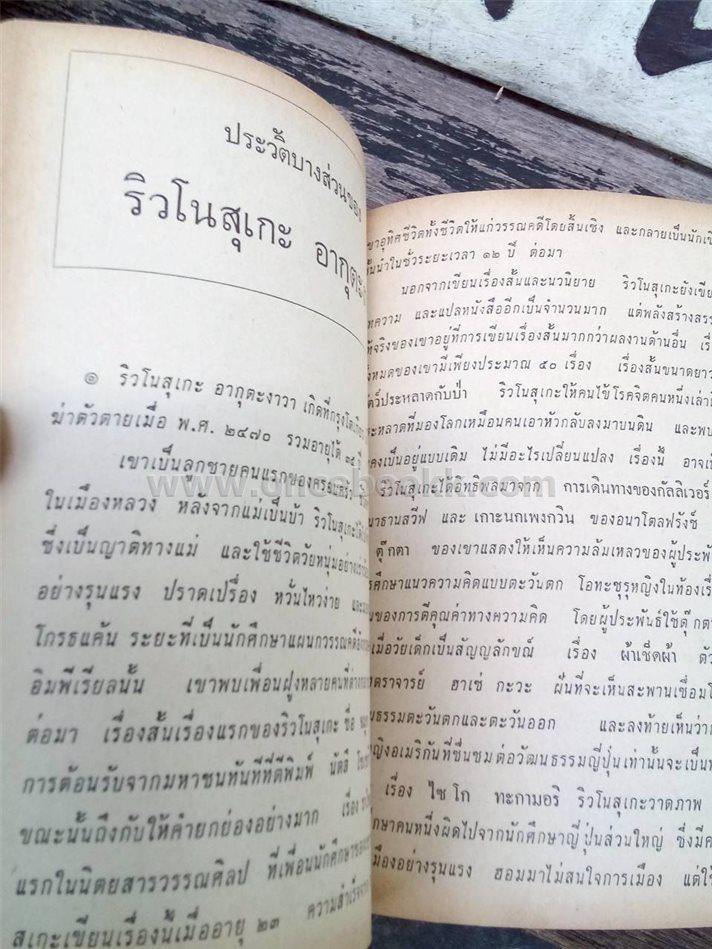 ประวัติบางส่วนของ
ริวโนสุเกะ อากุตะ
๑ ริวโนสุเกะ อากุตะงาวา เกิดที่กรุงโตเกียว
ฆ่าตัวตายเมื่อ พ.ศ. ๒๔๗๐ รวมอายุได้ ๓๕ ปี
เขาเป็นลูกชายคนแรกของครอบครัว
ในเมืองหลวง หลังจากแม่เป็นบ้า ริวโนสุเกะ
ซึ่งเป็นญาติทางแม่ และใช้ชีวิตวัยหนุ่มอย่าง
อย่างรุนแรง ปราดเปรื่อง หวั่นไหวง่าย และ
โกรธแค้น ระยะที่เป็นนักศึกษาแผนกวรรณคดี
อิมพีเรียลนั้น เขาพบเพื่อนฝูงหลายคนที่ต่าง
ต่อมา เรื่องสั้นเรื่องแรกของริวโนสุเกะ ชื่อ
การต้อนรับจากมหาชนทันทีที่ตีพิมพ์ นัตสึ
ขณะนั้นถึงกับให้คำยกย่องอย่างมาก เรื่อง
แรกในนิตยสารวรรณศิลป ที่เพื่อนนักศึกษาของ
สุเกะเขียนเรื่องนี้เมื่ออายุ ๒๓ ความสำเร็จจาก
เขาอุทิศชีวิตทั้งชีวิตให้แก่วรรณคดีโดยสิ้นเชิง และกลายเป็นนักเขี
ชั้นนำในชั่วระยะเวลา ๑๒ ปี ต่อมา
นอกจากเขียนเรื่องสั้นและนวนิยาย ริวโนสุเกะยังเขีย
ทความ และแปลหนังสืออีกเป็นจำนวนมาก แต่พลังสร้างสรร
ท้จริงของเขาอยู่ที่การเขียนเรื่องสั้นมากกว่าผลงานด้านอื่น เรื่
งหมดของเขามีเพียงประมาณ ๕๐ เรื่อง เรื่องสั้นขนาดยาว
สัตว์ประหลาดกับป่า ริวโนสุเกะให้คนไข้โรคจิตคนหนึ่งเล่าถึ
ะหลาดที่มองโลกเหมือนคนเอาหัวกลับลงมาบนดิน และพบ
คงเป็นอยู่แบบเดิม ไม่มีอะไรเปลี่ยนแปลง เรื่องนี้ อาจเ
ริวโนสุเกะได้อิทธิพลมาจาก การเดินทางของกัลลิเวอร์
นาธานสวีฟ และ เกาะนกเพงกวิน ของอนาโตลฟรังซ์
ตุ๊กตา ของเขาแสดงให้เห็นความล้มเหลวของผู้ประพั
รศึกษาแนวความคิดแบบตะวันตก โอทะชุรุหญิงในท้องเรื่
นของการตีคุณค่าทางความคิด โดยผู้ประพันธ์ใช้ตุ๊กตา
เมื่อวัยเด็กเป็นสัญญลักขณ์ เรื่อง ผ้าเช็ดผ้า ตัว
ตราจารย์ ฮาเซ่ กะวะ ฝันที่จะเห็นสะพานเชื่อมโ
นธรรมตะวันตกและตะวันออก และลงท้ายเห็นว่า
ญิงอเมริกันที่ชื่นชมต่อวัฒนธรรมญี่ปุ่นเท่านั้นจะเป็น
เรื่อง ไซโก ทะกามอริ ริวโนสุเกะวาดภาพ
กษาคนหนึ่งผิดไปจากนักศึกษาญี่ปุ่นส่วนใหญ่ ซึ่งมีค
เมืองอย่างรุนแรง ฮอมมาไม่สนใจการเมือง แต่ใช้